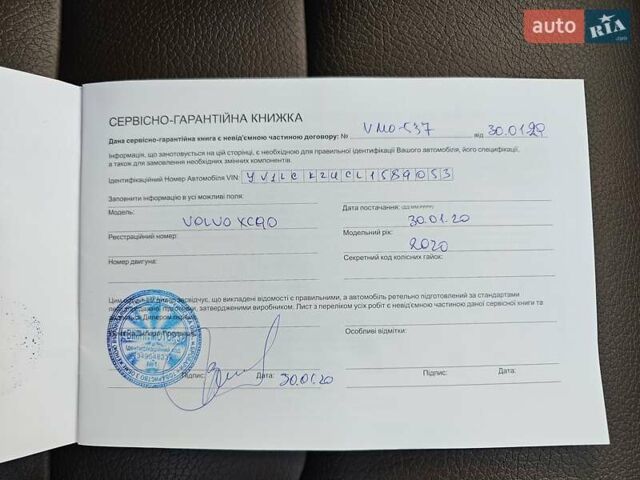 auto RIA .com
СЕРВІСНО-ГАРАНТІЙНА КНИЖКА
Дана сервісно-гарантійна книга є невід'ємною частиною договору: № VMO-537 від 30.01.20
Інформація, що занотовується на цій сторінці, є необхідною для правильної ідентифікації Вашого автомобіля, його специфікації,
а також для замовлення необхідних змінних компонентів.
Ідентифікаційний Номер Автомобіля VIN: YV1LCKZUCL1589053
Заповнити інформацію в усі можливі поля:
Модель: VOLVO XC90
Дата постачання: (ДД.ММ.РРРР) 30.01.20
Реєстраційний номер:
Модельний рік: 2020
Номер двигуна:
Секретний код колісних гайок:
Цим засвідчує, що викладені відомості є правильними, а автомобіль ретельно підготовлений за стандартами
підготовки, затвердженими виробником. Лист з переліком усіх робіт є невід'ємною частиною даної сервісної книги та
Дилером
Особливі відмітки:
Підпис: Дата: 30.01.20
Підпис: Дата: